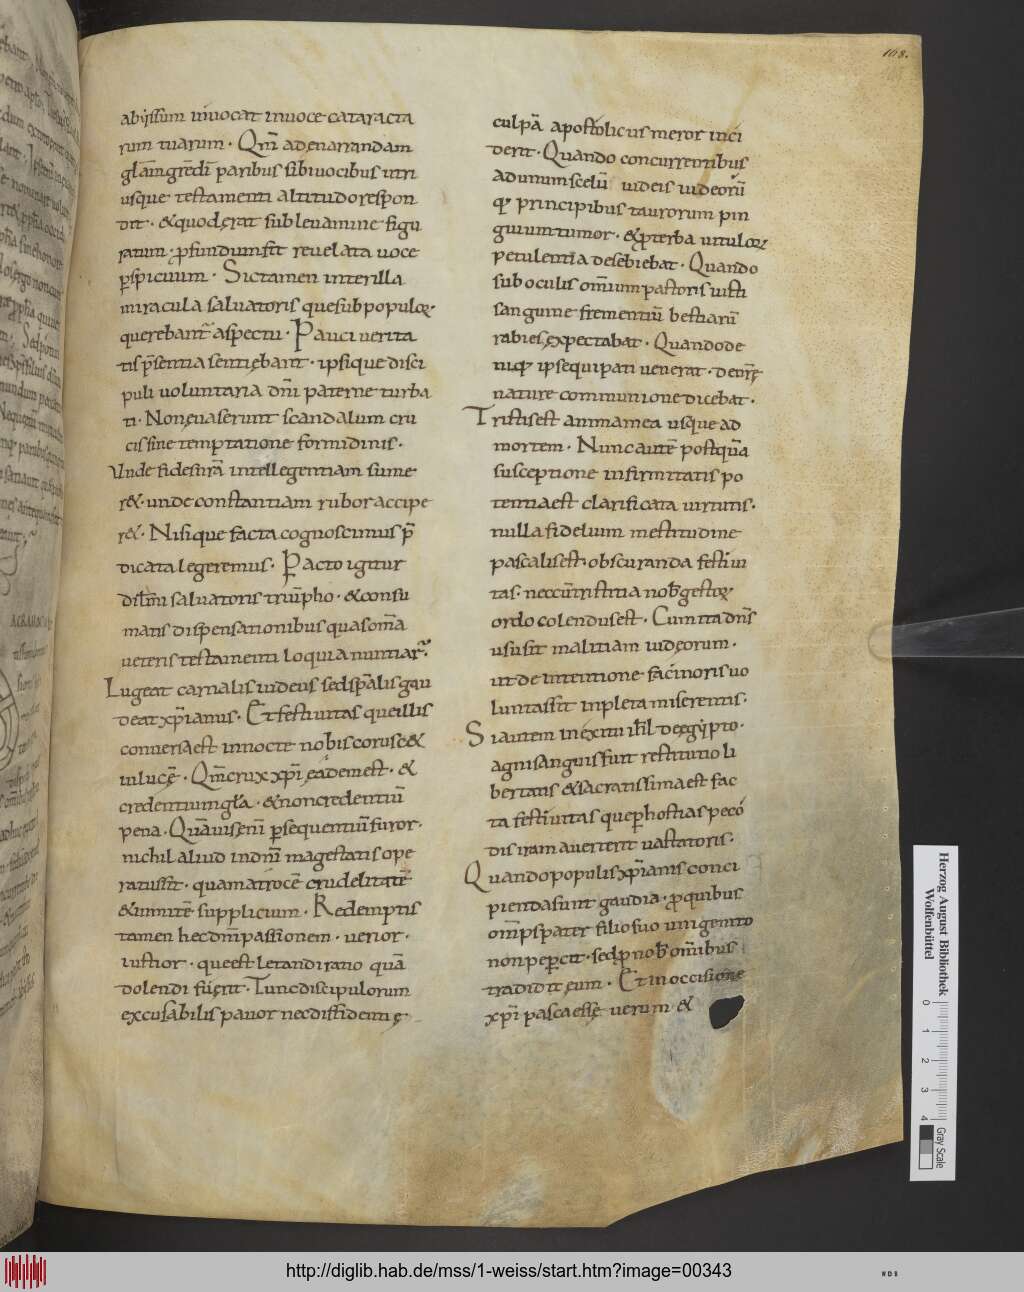 108.
abyssum invocat invoce cataracta
rum tuarum · Qm̄ adenarrandam
gl̄am grēdī paribus sibi vocibus utri
usque testamenti altitudo respon
dit · & quod erat sub levamine figu
ratum · profundum fit revelata voce
perspicuum · Sic tamen inter illa
miracula salvatoris que sub populor·
querebant̄ aspectu · Pauci verita
tis p̄sentia sentiebant · ipsique disci
puli voluntaria dn̄i paterne turba
ti · Non evaserunt scandalum cru
cis sine temptatione formidinis ·
Unde fides n̄ra intellegentiam sume
r& · unde constantiam rubor accipe
r& · Nisi que facta cognoscimus p̄
dicata legeremus · Pacto igitur
salvatoris triūpho · & consu
matis dispensationibus quas om̄a
veteris testamenti loquia nuntiar̄ ·
Lugeat carnalis iudeus sed sp̄alis gau
deat xp̄ianus · Et festivitas que illis
conversa est in nocte nobis corusc&
in lucē · Qm̄ crux xp̄i eadem est · &
credentium gl̄a · & non credentiū
pena · Quāvis en̄i persequentiū furor ·
nichil aliud in dn̄m magestatis ope
ratus sit · quam atrocē crudelitatē
& inmitē supplicium · Redemptis
tamen hec dn̄m passionem · verior ·
iustior · que est letandi ratio quā
dolendi fuerit · Tunc discipulorum
excusabilis pavor nec diffidentiȩ
culpā apostolicus meror inci
derit · Quando concurrentibus
ad unum scelū iudeis iudeorū
q; principibus taurorum pin
guium tumor · & p̄ter ba vitulor·
petulentia desebiebat · Quando
sub oculis om̄ium pastoris iusti
sanguine frementiū bestiarū
rabies expectabat · Quando de
niq; ipse qui pati venerat · de nr̄ȩ
nature communione dicebat ·
Tristis est anima mea usque ad
mortem · Nunc autē postquā
susceptione infirmitatis po
tentia est clarificata virtutis ·
nulla fidelium mestitudine
pascalis est obscuranda festivi
tas · nec cū tristitia nob̄ gestor·
ordo colendus est · Cum ita dn̄s
usus sit malitiam iudeorum ·
ut de intentione facinoris vo
luntas sit inpleta miserentis ·
Si autem in exitu isr̄l de egypto ·
agni sanguis fuit restitutio li
bertatis & sacratissima est fac
ta festivitas que per hostias peco
dis iram averterit vastatoris ·
Quando populis xp̄ianis conci
pienda sunt gaudia · pro quibus
om̄ps pater filio suo unigenito
non pepercit · sed pro nob̄ om̄ibus
tradidit eum · Et in occisione
xp̄i pasca esse verum &
Herzog August Bibliothek
Wolfenbüttel
0 1 2 3 4
Gray Scale
http://diglib.hab.de/mss/1-weiss/start.htm?image=00343